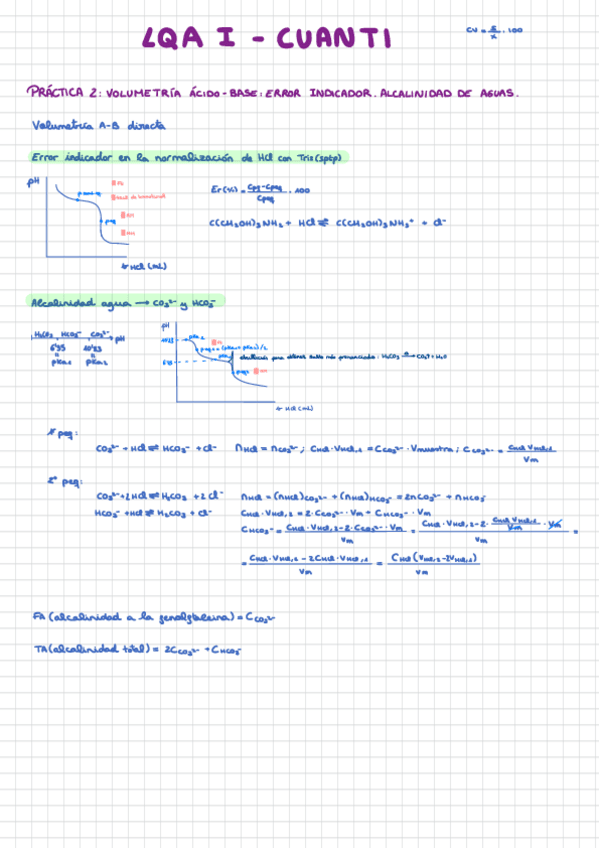 LQA I - CUANTI
CV = s/x̄ · 100
PRÁCTICA 2: VOLUMETRÍA ÁCIDO-BASE: ERROR INDICADOR. ALCALINIDAD DE AGUAS.
Volumetría A-B directa
Error indicador en la normalización de HCl con Tris (sptp)
pH
peq
RM
HCl (mL)
Er(%) = Cpf-Cpeq/Cpeq · 100
C(CH₂OH)₃NH₂ + HCl ⇌ C(CH₂OH)₃NH₃⁺ + Cl⁻
Alcalinidad agua → CO₃²⁻ y HCO₃⁻
H₂CO₃ HCO₃⁻ CO₃²⁻ pH
6'35 10'33
pKa₁ pKa₂
pH
10'33 pKa₂
peq₁ = (pKa₁ + pKa₂)/2
6'35 pKa₁ ebullición para obtener salto más pronunciado: H₂CO₃ → CO₂↑ + H₂O
peq₂
HCl (mL)
1º peq:
CO₃²⁻ + HCl ⇌ HCO₃⁻ + Cl⁻ nHCl = nCO₃²⁻ ; CHCl · VHCl,1 = CCO₃²⁻ · Vmuestra ; CCO₃²⁻ = CHCl · VHCl,1/Vm
2º peq:
CO₃²⁻ + 2HCl ⇌ H₂CO₃ + 2Cl⁻ nHCl = (nHCl)CO₃²⁻ + (nHCl)HCO₃⁻ = 2nCO₃²⁻ + nHCO₃⁻
HCO₃⁻ + HCl ⇌ H₂CO₃ + Cl⁻ CHCl · VHCl,2 = 2 · CCO₃²⁻ · Vm + CHCO₃⁻ · Vm
CHCO₃⁻ = CHCl · VHCl,2 - 2 · CCO₃²⁻ · Vm/Vm = CHCl · VHCl,2 - 2 · CHCl · VHCl,1/Vm · Vm/Vm =
= CHCl · VHCl,2 - 2CHCl · VHCl,1/Vm = CHCl (VHCl,2 - 2VHCl,1)/Vm
FA (alcalinidad a la fenolftaleína) = CCO₃²⁻
TA (alcalinidad total) = 2CCO₃²⁻ + CHCO₃⁻